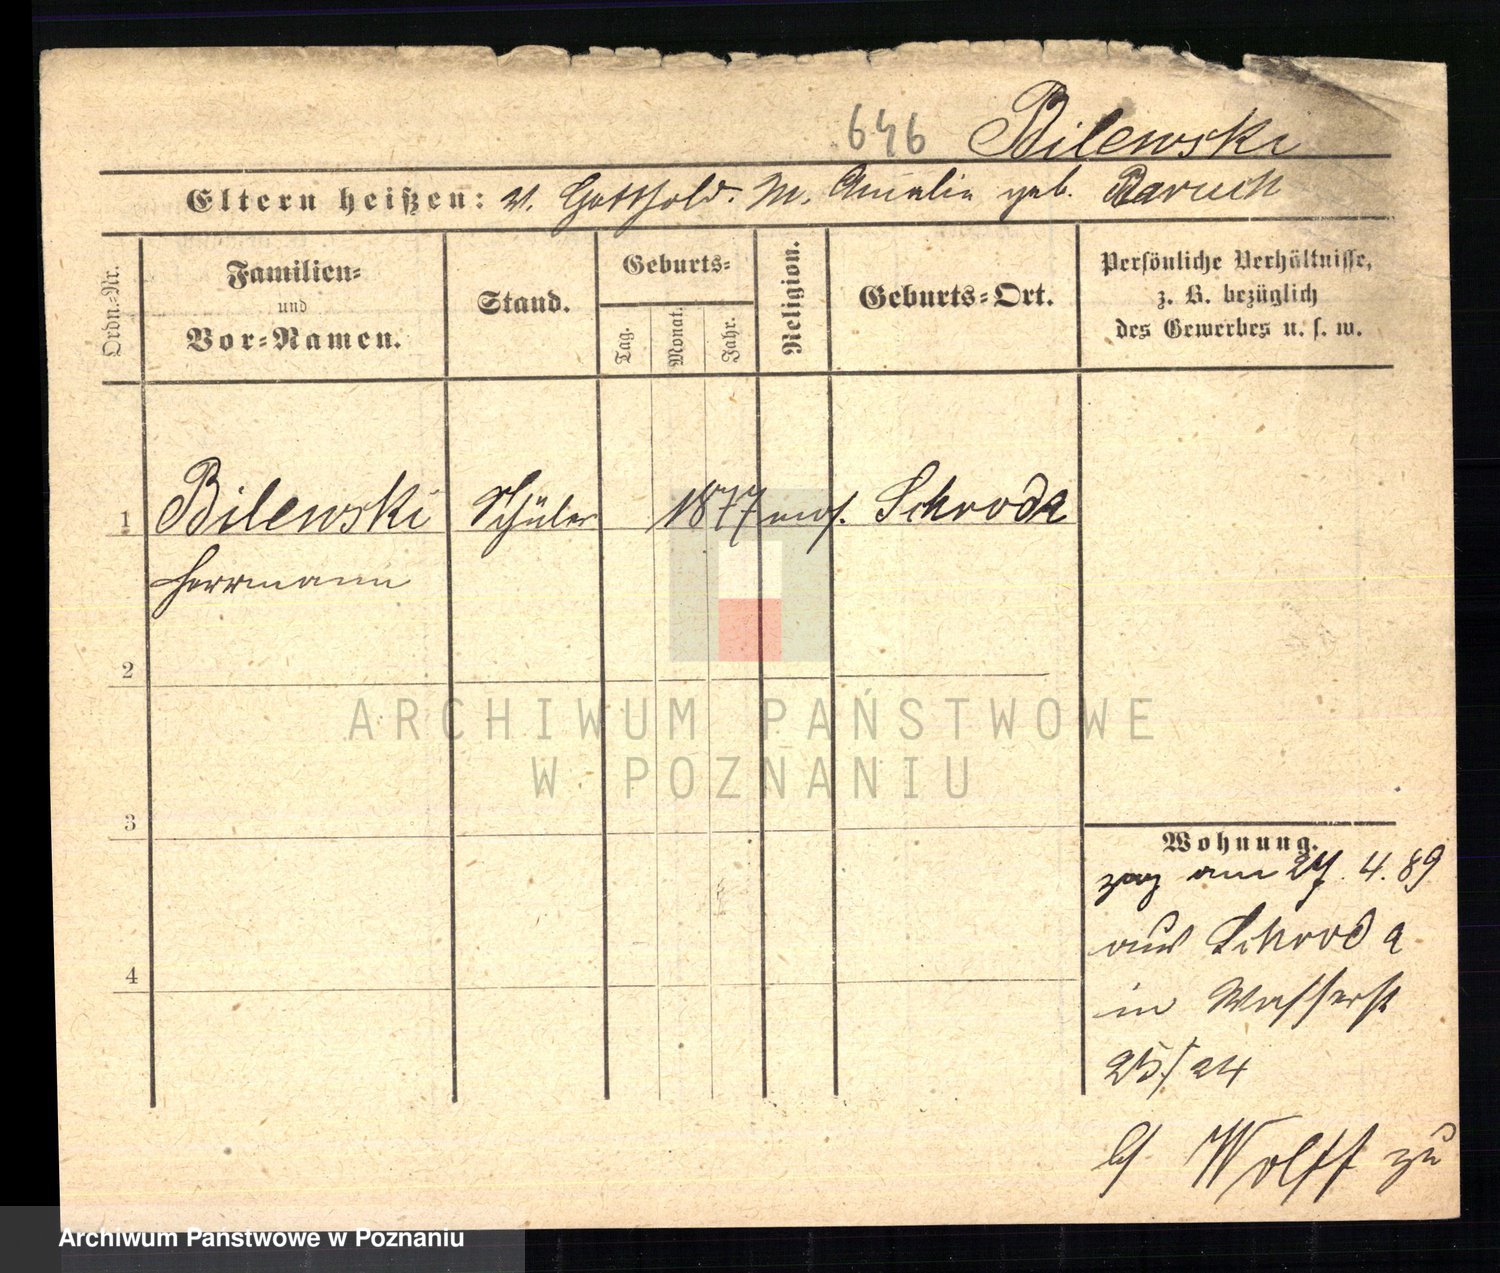 646 Bilewski
Eltern heißen: V. Gotthold. M. Amalie geb. Baruch
Ordn.-Nr.
Familien-
und
Vor-Namen.
Stand.
Geburts-
Tag.
Monat.
Jahr.
Religion.
Geburts-Ort.
Persönliche Verhältnisse,
z. B. bezüglich
des Gewerbes u. s. w.
1 Bilewski Schüler 1877 mos. Schroda
Herrmann
2
3
4
Wohnung.
zog am 27. 4. 89
aus Schroda
in Wasserst
25/24
bei Wolff zu
ARCHIWUM PAŃSTWOWE
W POZNANIU
Archiwum Państwowe w Poznaniu